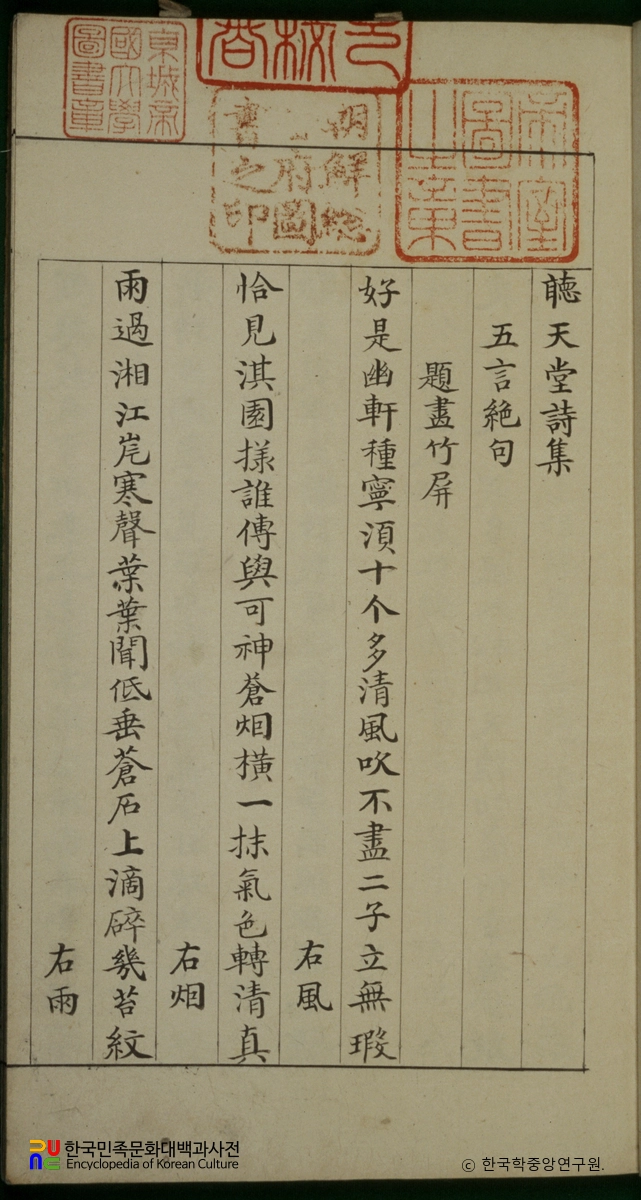 帝室圖書之章
朝鮮總府圖書之印
京城帝國大學圖書章
聽天堂詩集
五言絶句
題畫竹屏
好是幽軒種寧須十个多清風吹不盡二子立無瑕
右風
恰見淇園㨾誰傳與可神蒼烟橫一抹氣色轉清真
右烟
雨過湘江岸寒聲葉葉聞低垂蒼石上滴碎幾苔紋
右雨
한국민족문화대백과사전
Encyclopedia of Korean Culture
© 한국학중앙연구원.